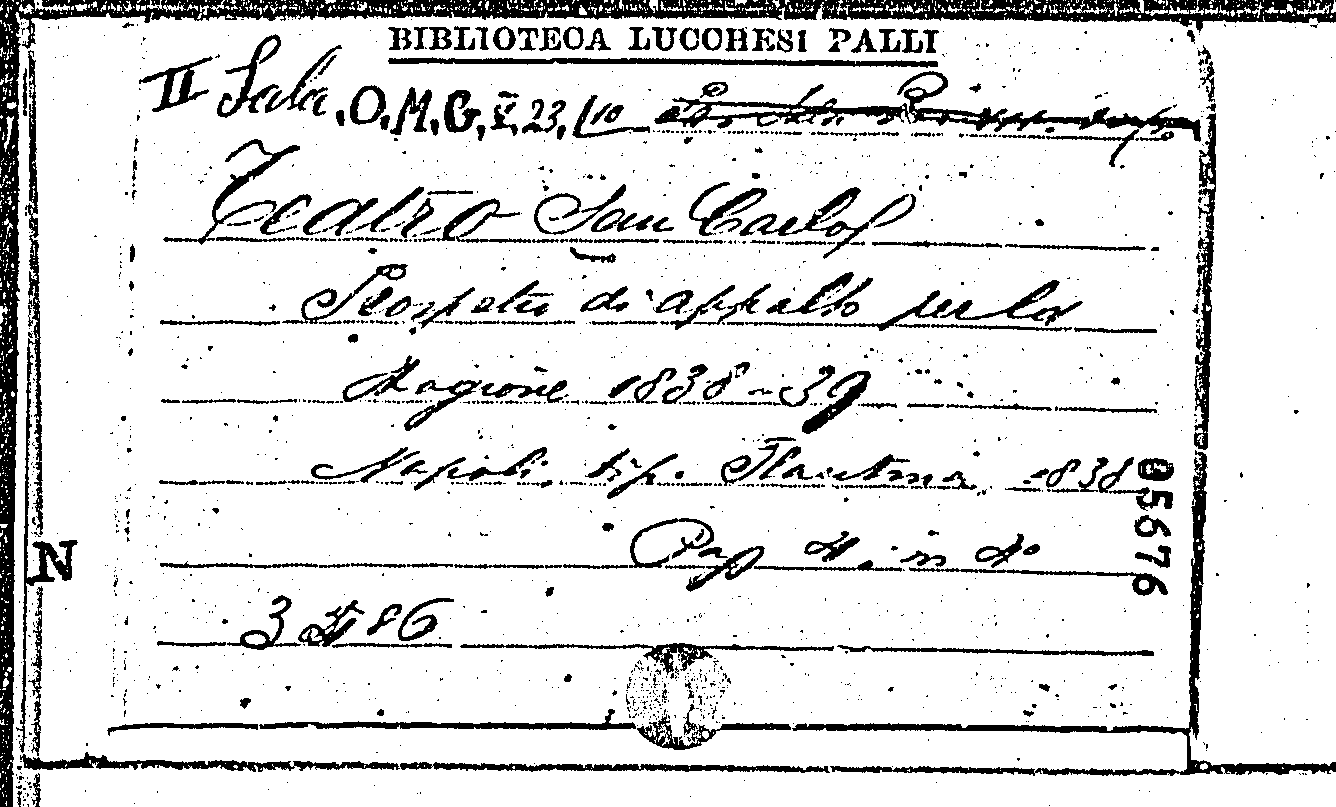 BIBLIOTECA LUCCHESI PALLI
II Sala, O.M.G. X. 23, (10
Teatro San Carlo
Prospetto di appalto per la
Stagione 1838-39
Napoli, tip. Flautina, 1838
05676
Pag 4. in 4°
N